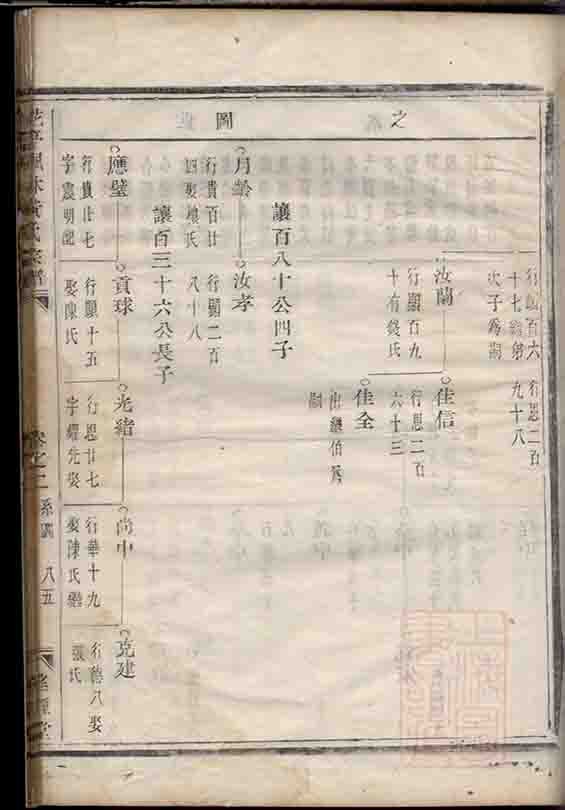 之
圖
行顯百六
十七繼弟
次子為嗣
行思二百
九十八
汝蘭
行顯百九
十有錢氏
佳信
行思二百
六十三
佳全
出繼伯為
嗣
讓百八十公四子
月齡
行貴百廿
四娶樓氏
汝孝
行顯二百
八十八
讓百三十六公長子
應璧
行貴廿七
字震明配
貢球
行顯十五
娶陳氏
光緒
行思廿七
字耀先娶
尚中
行華十九
娶陳氏繼
克建
行德八娶
張氏
黃氏宗譜
卷之二
系圖
八五
堂